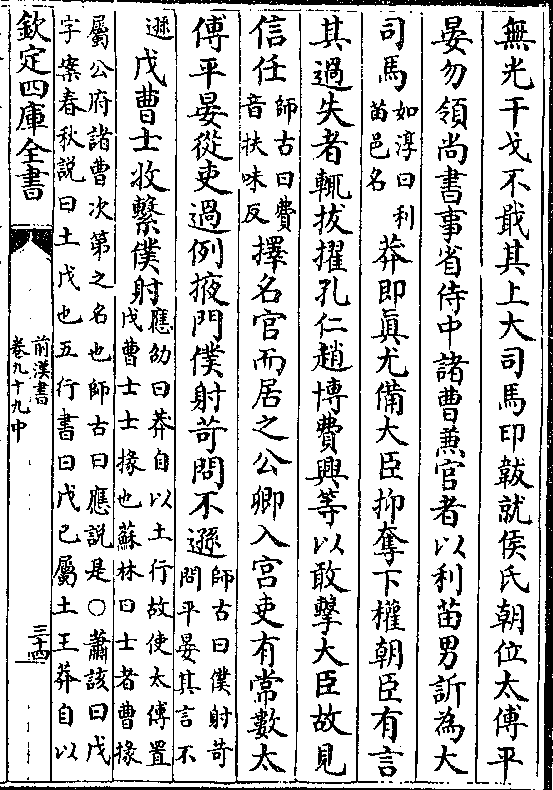 無光干戈不戢其上大司馬印韍就侯氏朝位太傅平
晏勿領尚書事省侍中諸曹兼官者以利苗男訢為大
司馬如淳曰利苗邑名莽即真尤備大臣抑奪下權朝臣有言
其過失者輒拔擢孔仁趙博費興等以敢擊大臣故見
信任師古曰費音扶味反擇名官而居之公卿入宮吏有常數太
傅平晏從吏過例掖門僕射苛問不遜師古曰僕射苛問平晏其言不
遜戊曹士收繫僕射應劭曰莽自以土行故使太傅置戊曹士士掾也蘇林曰士者曹掾
屬公府諸曹次第之名也師古曰應說是○蕭該曰戊
字案春秋説曰土戊也五行書曰戊己屬土王莽自以
欽定四庫全書
前漢書
卷九十九中
三十四